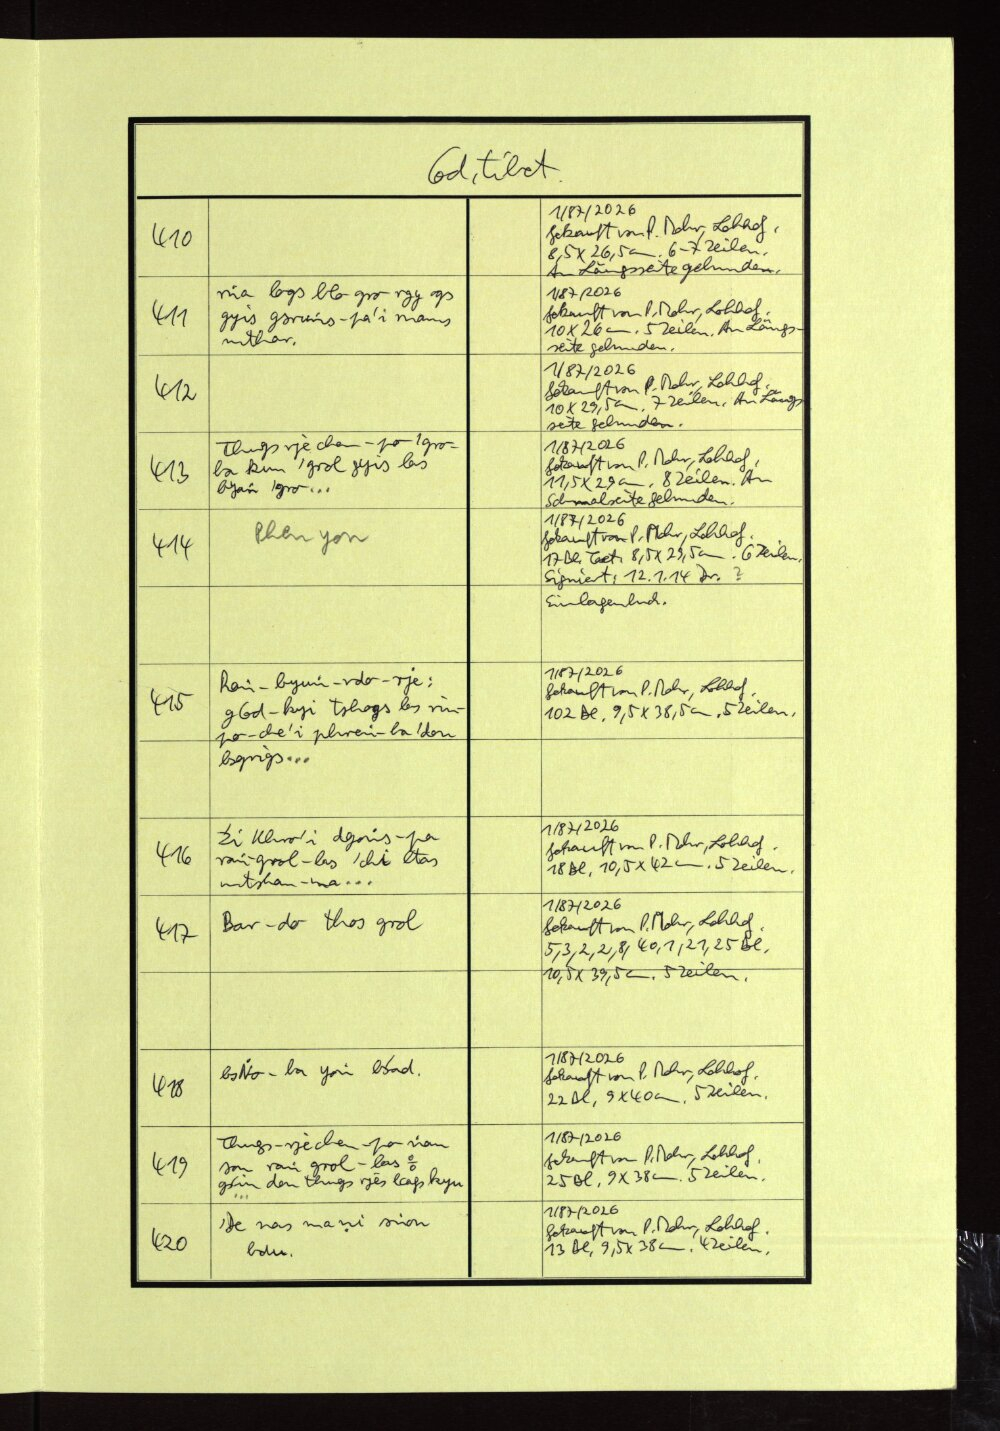 Cod. tibet.
410
1/87/2026
Gekauft von P. Mohr, Lohhof.
8,5 x 26,5 cm. 6-7 Zeilen.
An Längsseite gebunden.
411
gyis gsruṅs-pa'i rnams
mthar.
1/87/2026
Gekauft von P. Mohr, Lohhof.
10 x 26 cm. 5 Zeilen. An Längs-
seite gebunden.
412
1/87/2026
Gekauft von P. Mohr, Lohhof.
10 x 29,5 cm. 7 Zeilen. An Längs
seite gebunden.
413
Thugs rje chen-po 'gro-
ba kun 'grol gyis las
byaṅ 'gro...
1/87/2026
Gekauft von P. Mohr, Lohhof.
11,5 x 29 cm. 8 Zeilen. An
Schmalseite gebunden.
414
Phen yon
1/87/2026
Gekauft von P. Mohr, Lohhof.
17 Bl. Text. 8,5 x 29,5 cm. 6 Zeilen.
Signiert: 12.1.14 Dr. ?
Einlagenbnd.
415
Raṅ-byuṅ-rdo-rje:
gCod-kyi tshogs las rin-
po-che'i phreṅ-ba 'don
bsgrigs...
1/87/2026
Gekauft von P. Mohr, Lohhof.
102 Bl, 9,5 x 38,5 cm. 5 Zeilen.
416
Źi khro'i dgoṅs-pa
raṅ grol-las 'chi ltas
mtshan-ma...
1/87/2026
Gekauft von P. Mohr, Lohhof.
18 Bl, 10,5 x 42 cm. 5 Zeilen.
417
Bar-do thos grol
1/87/2026
Gekauft von P. Mohr, Lohhof.
5,3,2,2,8,40,1,21,25 Bl.
10,5 x 39,5 cm. 5 Zeilen.
418
bsṄo-ba yoṅ bśad.
1/87/2026
Gekauft von P. Mohr, Lohhof.
22 Bl, 9 x 40 cm. 5 Zeilen.
419
Thugs-rje chen-po ṅan
soṅ raṅ grol-las
gśin don thugs rjes lcags kyu
...
1/87/2026
Gekauft von P. Mohr, Lohhof.
25 Bl, 9 x 38 cm. 5 Zeilen.
420
'De nas maṇi sṅon
bdu.
1/87/2026
Gekauft von P. Mohr, Lohhof.
13 Bl, 9,5 x 38 cm. 4 Zeilen.